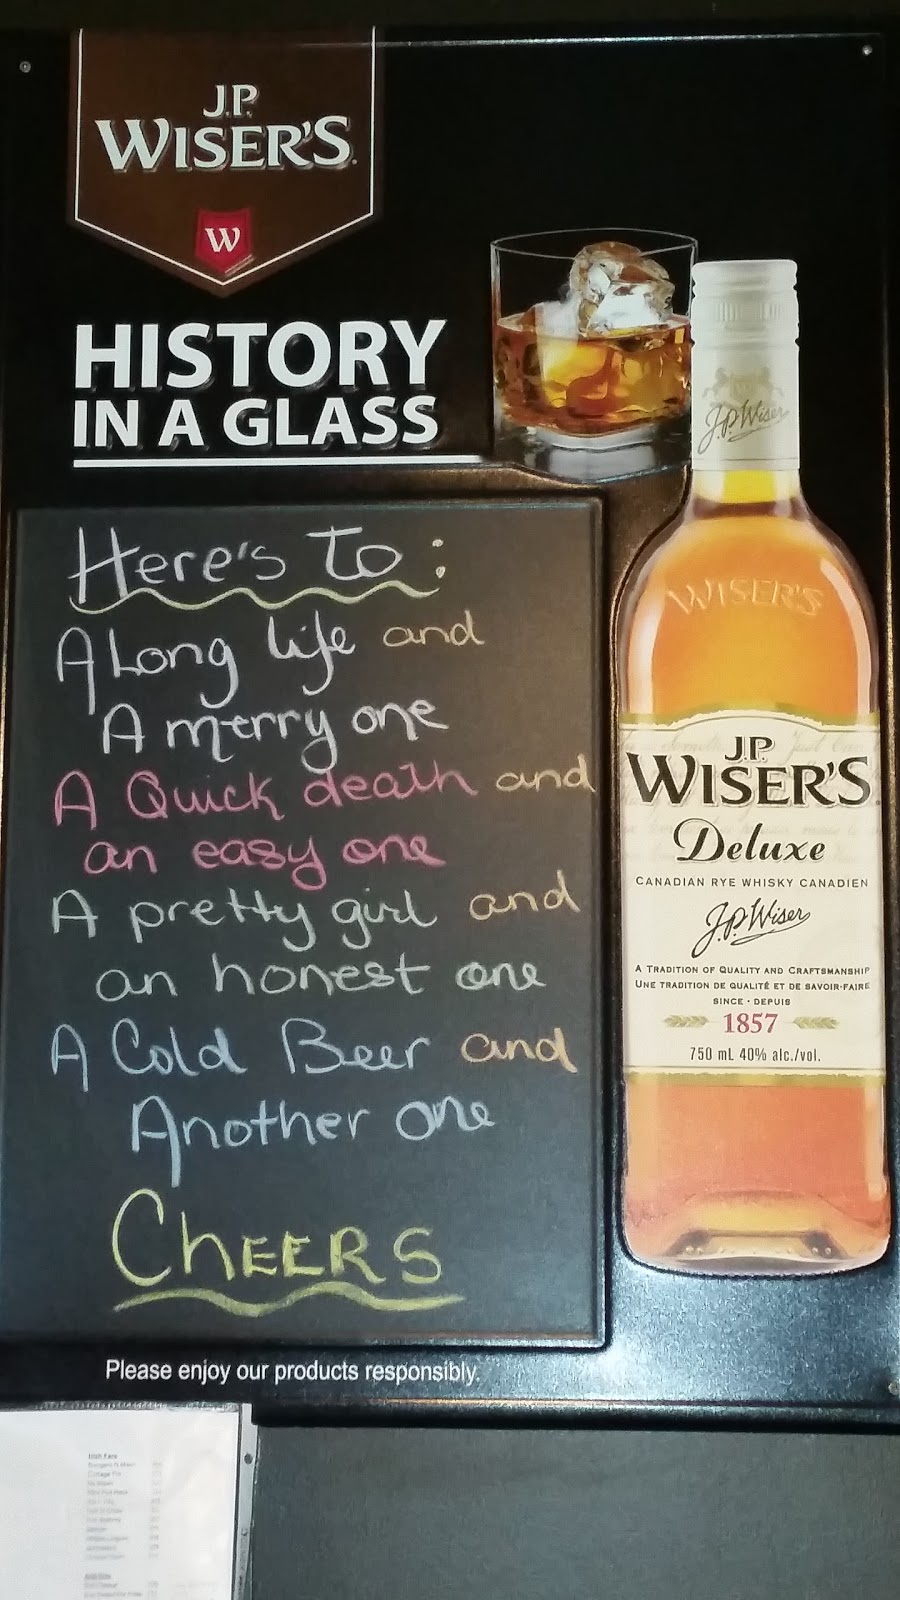 J.P.
WISER'S
W
HISTORY
IN A GLASS
Here's To:
A Long life and
A merry one
A Quick death and
an easy one
A pretty girl and
an honest one
A Cold Beer and
Another one
CHEERS
Please enjoy our products responsibly.
J.P. Wiser
WISER'S
J.P.
WISER'S
Deluxe
CANADIAN RYE WHISKY CANADIEN
J.P. Wiser
A TRADITION OF QUALITY AND CRAFTSMANSHIP
UNE TRADITION DE QUALITÉ ET DE SAVOIR-FAIRE
SINCE · DEPUIS
1857
750 mL 40% alc./vol.